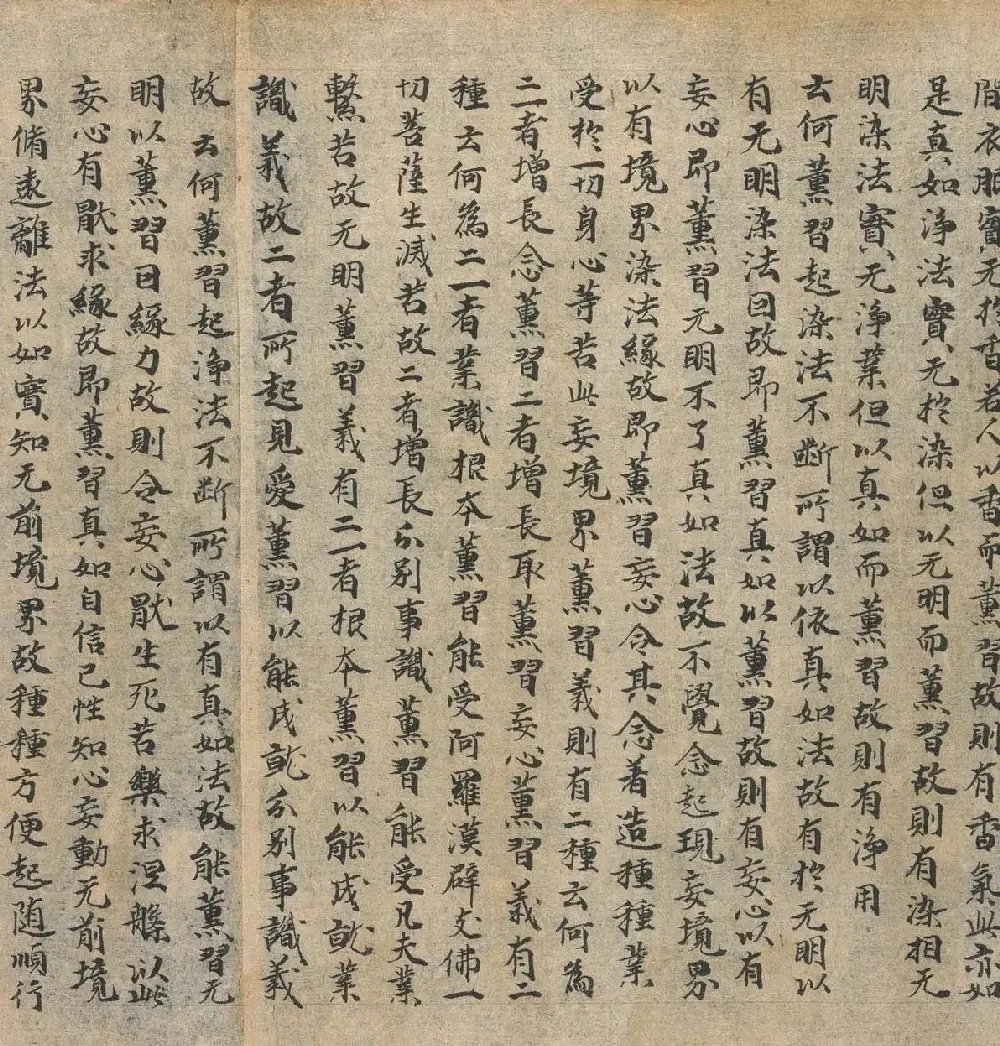 間衣服實无於香若人以香而薰習故則有香氣此亦如
是真如淨法實无於染但以无明而薰習故則有染相无
明染法實无淨業但以真如而薰習故則有淨用
云何薰習起染法不断所謂以依真如法故有於无明以
有无明染法因故即薰習真如以薰習故則有妄心以有
妄心即薰習无明不了真如法故不覺念起現妄境界
以有境界染法緣故即薰習妄心令其念著造種種業
受於一切身心等苦此妄境界薰習義則有二種云何為
二一者增長念薰習二者增長取薰習妄心薰習義有二
種云何為二一者業識根本薰習能受阿羅漢辟支佛一
切菩薩生滅苦故二者增長分別事識薰習能受凡夫業
繫苦故无明薰習義有二一者根本薰習以能成就業
識義故二者所起見愛薰習以能成就分別事識義
故云何薰習起淨法不断所謂以有真如法故能薰習无
明以薰習因緣力故則令妄心厭生死苦樂求涅槃以此
妄心有厭求緣故即薰習真如自信己性知心妄動无前境
界脩遠離法以如實知无前境界故種種方便起随順行